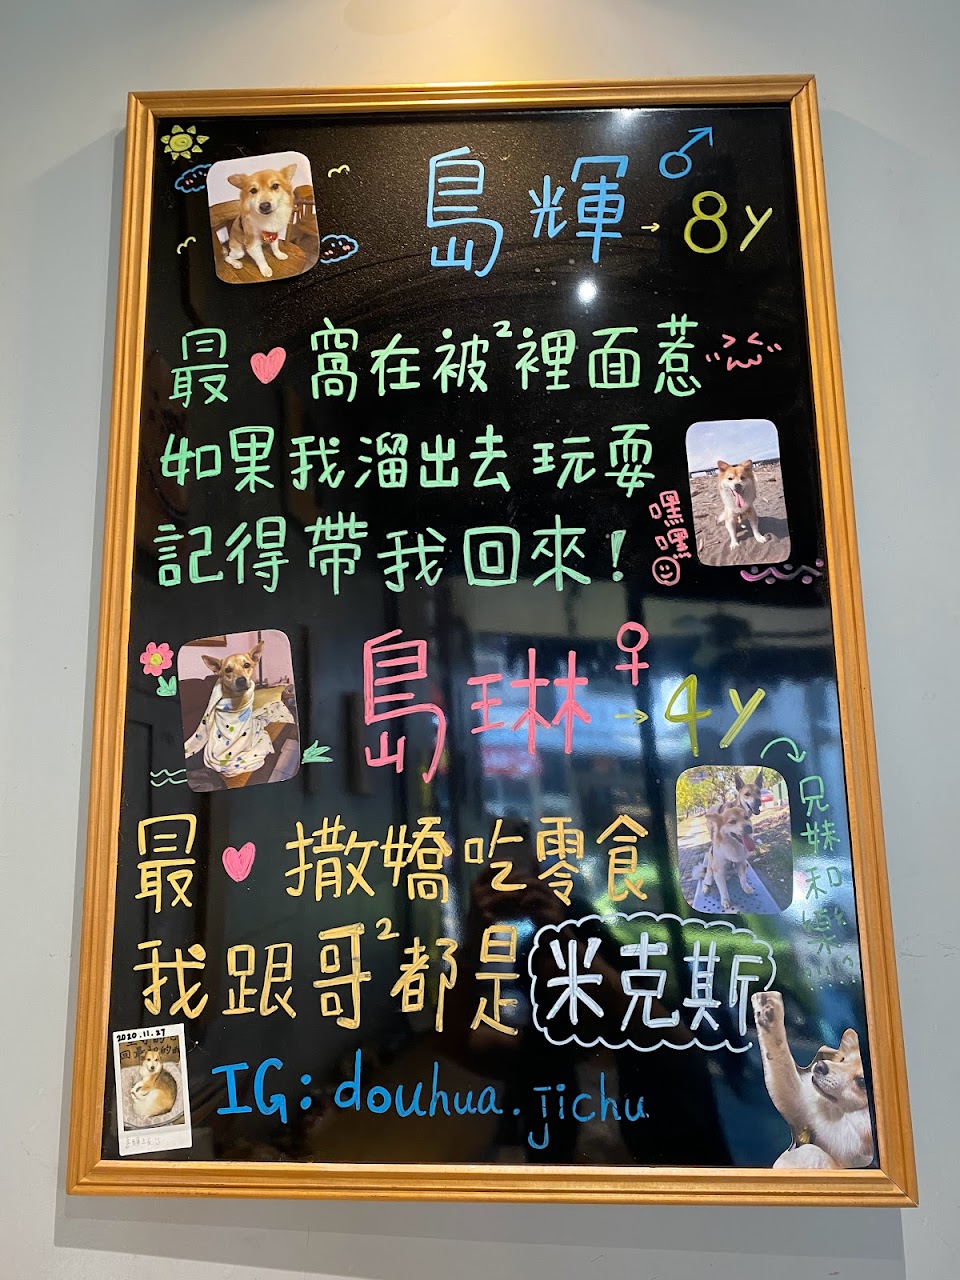 島輝♂→8y
最♥窩在被²裡面惹
如果我溜出去玩耍
記得帶我回來!
嘿嘿
島琳♀→4y
兄妹和樂
最♥撒嬌吃零食
我跟哥²都是米克斯
2020.11.27
IG:douhua.jichu